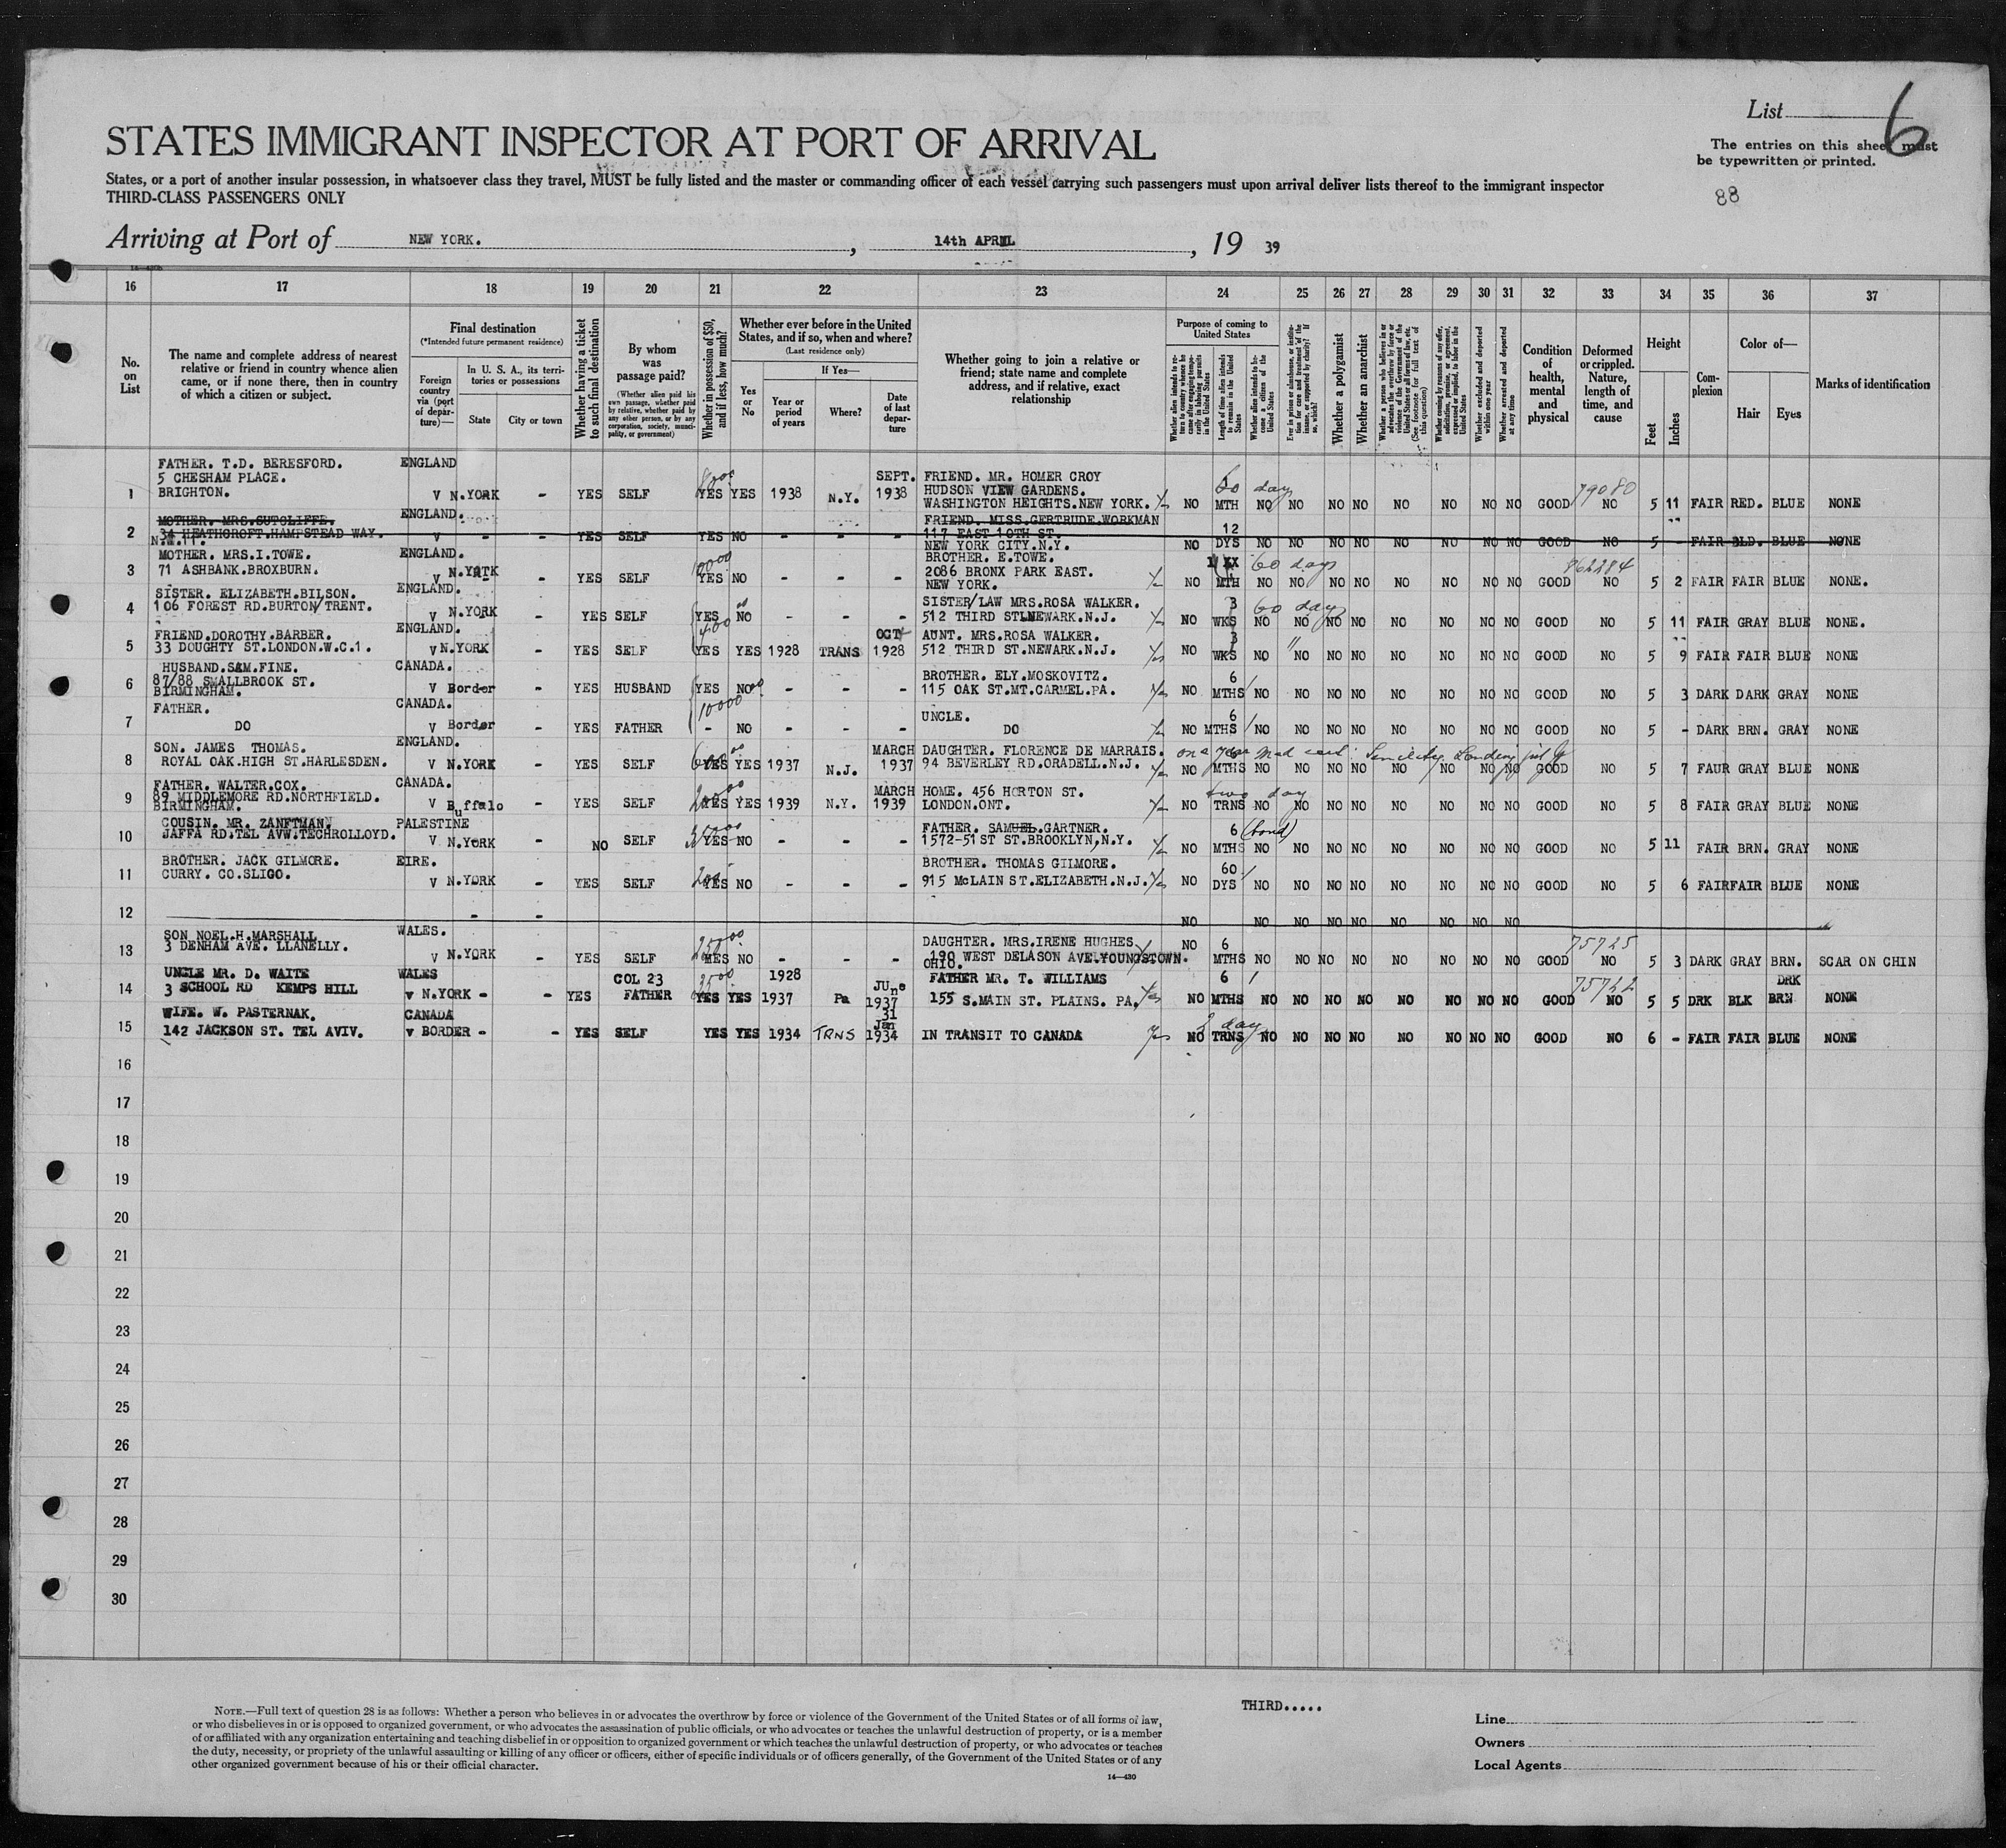 List 6
STATES IMMIGRANT INSPECTOR AT PORT OF ARRIVAL
The entries on this sheet must
be typewritten or printed.
States, or a port of another insular possession, in whatsoever class they travel, MUST be fully listed and the master or commanding officer of each vessel carrying such passengers must upon arrival deliver lists thereof to the immigrant inspector
THIRD-CLASS PASSENGERS ONLY
88
Arriving at Port of NEW YORK. , 14th APRIL , 19 39
16 17 18 19 20 21 22 23 24 25 26 27 28 29 30 31 32 33 34 35 36 37
No. on List
The name and complete address of nearest relative or friend in country whence alien came, or if none there, then in country of which a citizen or subject.
Final destination
(*Intended future permanent residence)
Foreign country via (port of departure)—
In U. S. A., its territories or possessions
State
City or town
Whether having a ticket to such final destination
By whom was passage paid?
(Whether alien paid his own passage, whether paid by relative, whether paid by any other person, or by any corporation, society, municipality, or government)
Whether in possession of $50, and if less, how much?
Whether ever before in the United States, and if so, when and where?
(Last residence only)
Yes or No
If Yes—
Year or period of years
Where?
Date of last departure
Whether going to join a relative or friend; state name and complete address, and if relative, exact relationship
Purpose of coming to United States
Whether alien intends to return to country whence he came after engaging temporarily in laboring pursuits in the United States
Length of time alien intends to remain in the United States
Whether alien intends to become a citizen of the United States
Ever in prison or almshouse, or institution for care and treatment of the insane, or supported by charity? If so, which?
Whether a polygamist
Whether an anarchist
Whether a person who believes in or advocates the overthrow by force or violence of the Government of the United States or all forms of law, etc. (See footnote for full text of this question)
Whether coming by reasons of any offer, solicitation, promise, or agreement, expressed or implied, to labor in the United States
Whether excluded and deported within one year
Whether arrested and deported at any time
Condition of health, mental and physical
Deformed or crippled. Nature, length of time, and cause
Height
Feet
Inches
Complexion
Color of—
Hair
Eyes
Marks of identification
FATHER. T.D. BERESFORD. ENGLAND
5 CHESHAM PLACE. SEPT. FRIEND. MR. HOMER CROY
HUDSON VIEW GARDENS. 60 days 79080
1 BRIGHTON. V N.YORK - YES SELF YES YES 1938 N.Y. 1938 WASHINGTON HEIGHTS.NEW YORK. NO MTH NO NO NO NO NO NO NO NO GOOD NO 5 11 FAIR RED. BLUE NONE
MOTHER. MRS.SUTCLIFFE. ENGLAND. FRIEND. MISS.GERTRUDE.WORKMAN
2 34 HEATHCROFT.HAMPSTEAD WAY. V - YES SELF YES NO - - - 117 EAST 10TH ST. 12
N.W.11. NEW YORK CITY.N.Y. NO DYS NO NO NO NO NO NO NO NO GOOD NO 5 - FAIR BLD. BLUE NONE
MOTHER. MRS.I.TOWE. ENGLAND. BROTHER. E.TOWE. 60 days
3 71 ASHBANK.BROXBURN. V N.YORK - YES SELF YES NO - - - 2086 BRONX PARK EAST.
NEW YORK. NO MTH NO NO NO NO NO NO NO NO GOOD NO 5 2 FAIR FAIR BLUE NONE.
SISTER. ELIZABETH.BILSON. ENGLAND. SISTER/LAW MRS.ROSA WALKER. 3 60 days
4 106 FOREST RD.BURTON/TRENT. V N.YORK - YES SELF YES NO - - - 512 THIRD ST.NEWARK.N.J. NO WKS NO NO NO NO NO NO NO NO GOOD NO 5 11 FAIR GRAY BLUE NONE.
FRIEND.DOROTHY.BARBER. ENGLAND. OCT AUNT. MRS.ROSA WALKER. 3 "
5 33 DOUGHTY ST.LONDON.W.C.1. V N.YORK - YES SELF YES YES 1928 TRANS 1928 512 THIRD ST.NEWARK.N.J. Yes NO WKS NO NO NO NO NO NO NO NO GOOD NO 5 9 FAIR FAIR BLUE NONE
HUSBAND.SAM.FINE. CANADA. BROTHER. ELY.MOSKOVITZ. 6
6 87/88 SMALLBROOK ST. V Border - YES HUSBAND YES NO - - - 115 OAK ST.MT.CARMEL.PA. Yes NO MTHS NO NO NO NO NO NO NO NO GOOD NO 5 3 DARK DARK GRAY NONE
BIRMINGHAM.
FATHER. CANADA. UNCLE. 6
7 DO V Border - YES FATHER - NO - - - DO NO MTHS NO NO NO NO NO NO NO NO GOOD NO 5 - DARK BRN. GRAY NONE
SON. JAMES THOMAS. ENGLAND. MARCH DAUGHTER. FLORENCE DE MARRAIS. one year Med cert: Senility
8 ROYAL OAK.HIGH ST.HARLESDEN. V N.YORK - YES SELF YES YES 1937 N.J. 1937 94 BEVERLEY RD.ORADELL.N.J. NO MTHS NO NO NO NO NO NO NO NO GOOD NO 5 7 FAUR GRAY BLUE NONE
FATHER. WALTER.COX. CANADA. MARCH HOME. 456 HORTON ST. two day
9 89 MIDDLEMORE RD.NORTHFIELD. V Buffalo - YES SELF YES YES 1939 N.Y. 1939 LONDON.ONT. NO TRNS NO NO NO NO NO NO NO NO GOOD NO 5 8 FAIR GRAY BLUE NONE
BIRMINGHAM.
COUSIN. MR. ZANFTMAN. PALESTINE FATHER. SAMUEL.GARTNER. 6 (bond)
10 JAFFA RD.TEL AVW.TECHROLLOYD. V N.YORK - NO SELF YES NO - - - 1572-51ST ST.BROOKLYN,N.Y. NO MTHS NO NO NO NO NO NO NO NO GOOD NO 5 11 FAIR BRN. GRAY NONE
BROTHER. JACK GILMORE. EIRE. BROTHER. THOMAS GILMORE. 60
11 CURRY. CO.SLIGO. V N.YORK - YES SELF YES NO - - - 915 McLAIN ST.ELIZABETH.N.J. Yes NO DYS NO NO NO NO NO NO NO NO GOOD NO 5 6 FAIR FAIR BLUE NONE
12 - - NO NO NO NO NO NO NO NO NO
SON NOEL.H.MARSHALL WALES. DAUGHTER. MRS.IRENE HUGHES NO 6 75725
13 3 DENHAM AVE. LLANELLY. V N.YORK - YES SELF YES NO - - - 190 WEST DELASON AVE.YOUNGSTOWN. MTHS NO NO NO NO NO NO NO NO GOOD NO 5 3 DARK GRAY BRN. SCAR ON CHIN
OHIO.
UNCLE MR. D. WAITE WALES COL 23 1928 JUne FATHER MR. T. WILLIAMS 6 75722 DRK
14 3 SCHOOL RD KEMPS HILL v N.YORK - - YES FATHER YES YES 1937 Pa 1937 155 S.MAIN ST. PLAINS. PA. Yes NO MTHS NO NO NO NO NO NO NO NO GOOD NO 5 5 DRK BLK BRN NONE
WIFE. W. PASTERNAK. CANADA 31 Jan
15 142 JACKSON ST. TEL AVIV. v BORDER - - YES SELF YES YES 1934 TRNS 1934 IN TRANSIT TO CANADA Yes NO TRNS NO NO NO NO NO NO NO NO GOOD NO 6 - FAIR FAIR BLUE NONE
16
17
18
19
20
21
22
23
24
25
26
27
28
29
30
NOTE.—Full text of question 28 is as follows: Whether a person who believes in or advocates the overthrow by force or violence of the Government of the United States or of all forms of law,
or who disbelieves in or is opposed to organized government, or who advocates the assassination of public officials, or who advocates or teaches the unlawful destruction of property, or is a member
of or affiliated with any organization entertaining and teaching disbelief in or opposition to organized government or which teaches the unlawful destruction of property, or who advocates or teaches
the duty, necessity, or propriety of the unlawful assaulting or killing of any officer or officers, either of specific individuals or of officers generally, of the Government of the United States or of any
other organized government because of his or their official character.
14—430
THIRD.....
Line
Owners
Local Agents